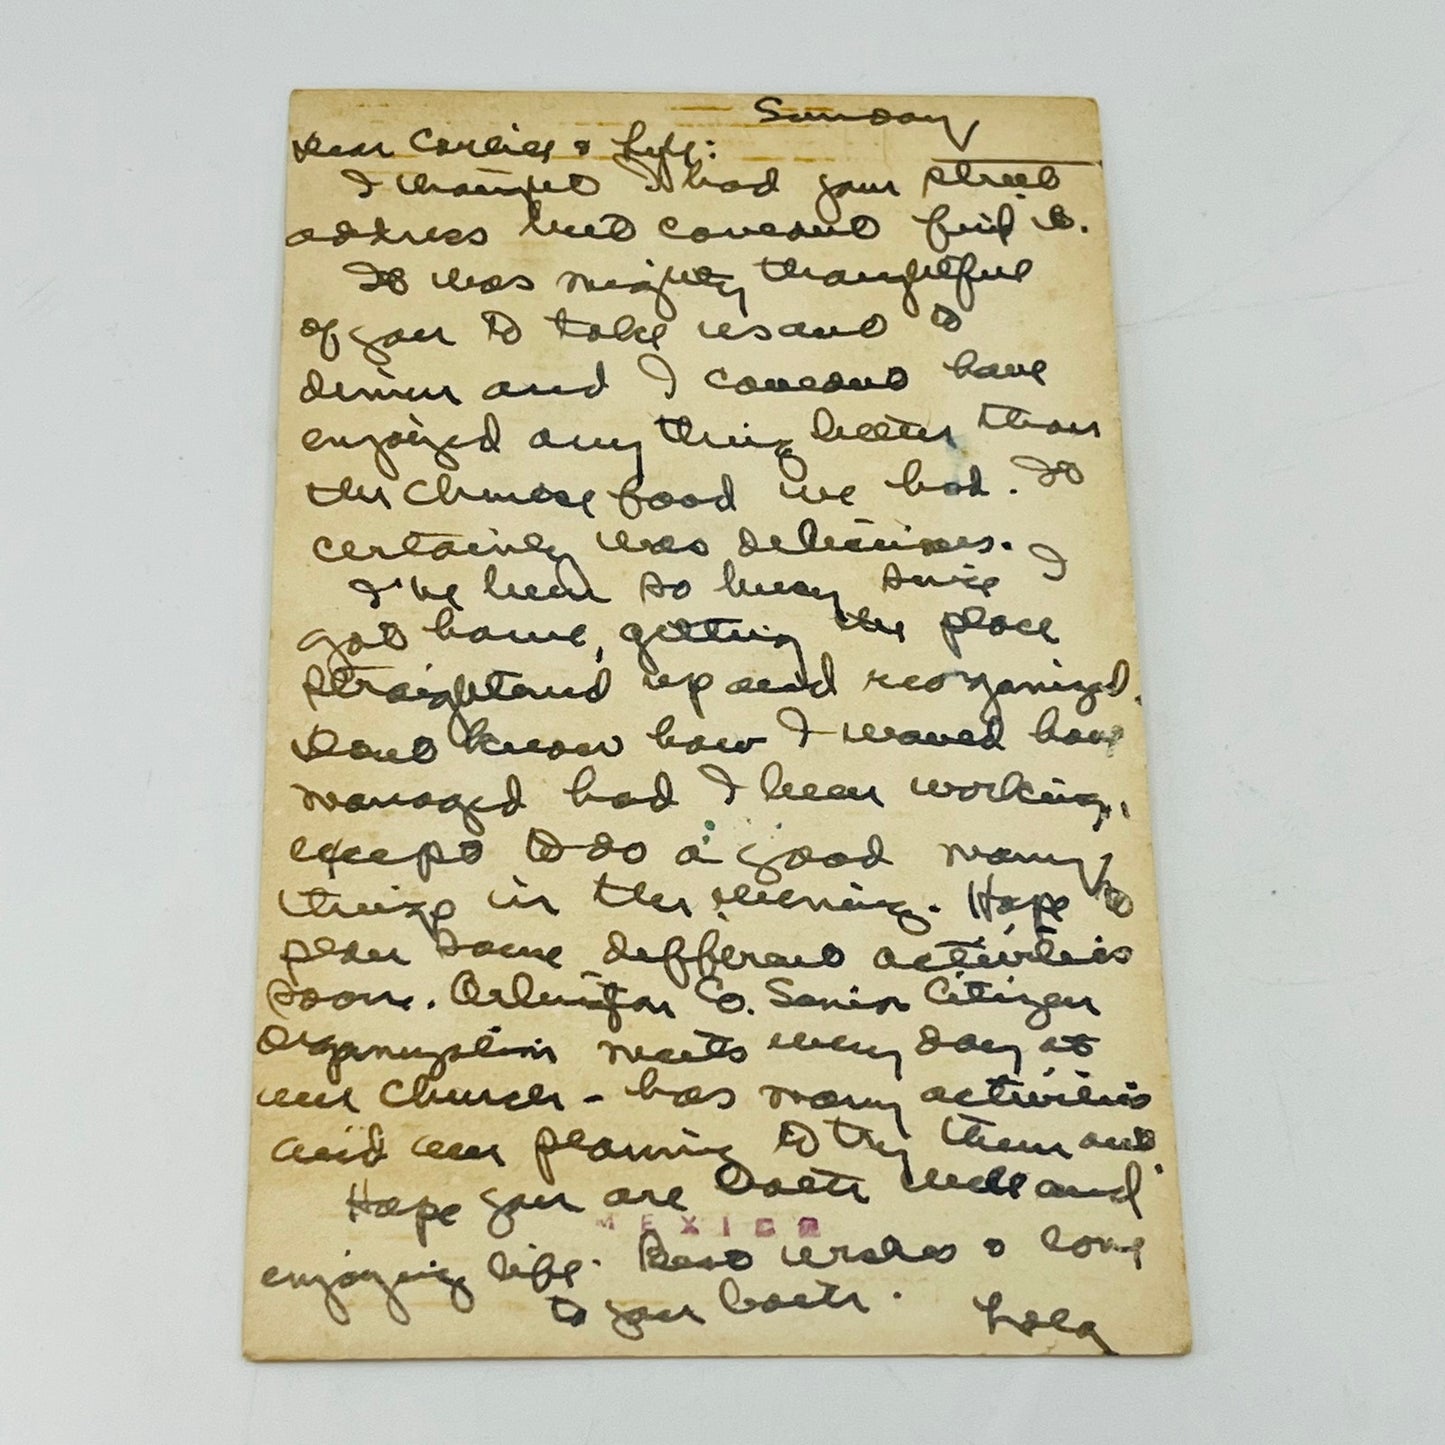 Sunday
Dear Corlies & Lyle:
I thought I had your street
address but couldnt find it.
It was mighty thoughtful
of you to take us out to
dinner and I couldnt have
enjoyed any thing better than
the Chinese food we had. It
certainly was delicious.
I've been so busy since I
got home, getting the place
straightened up and reorganized.
Dont know how I would have
managed had I been working,
except to do a good many
things in the evening. Hope to
plan some different activities
soon. Arlington Co. Senior Citizen
organization meets every day at
our Church - has many activities
and am planning to try them out.
Hope you are both well and
MEXICO
enjoying life. Best wishes & love
to you both.
Lola